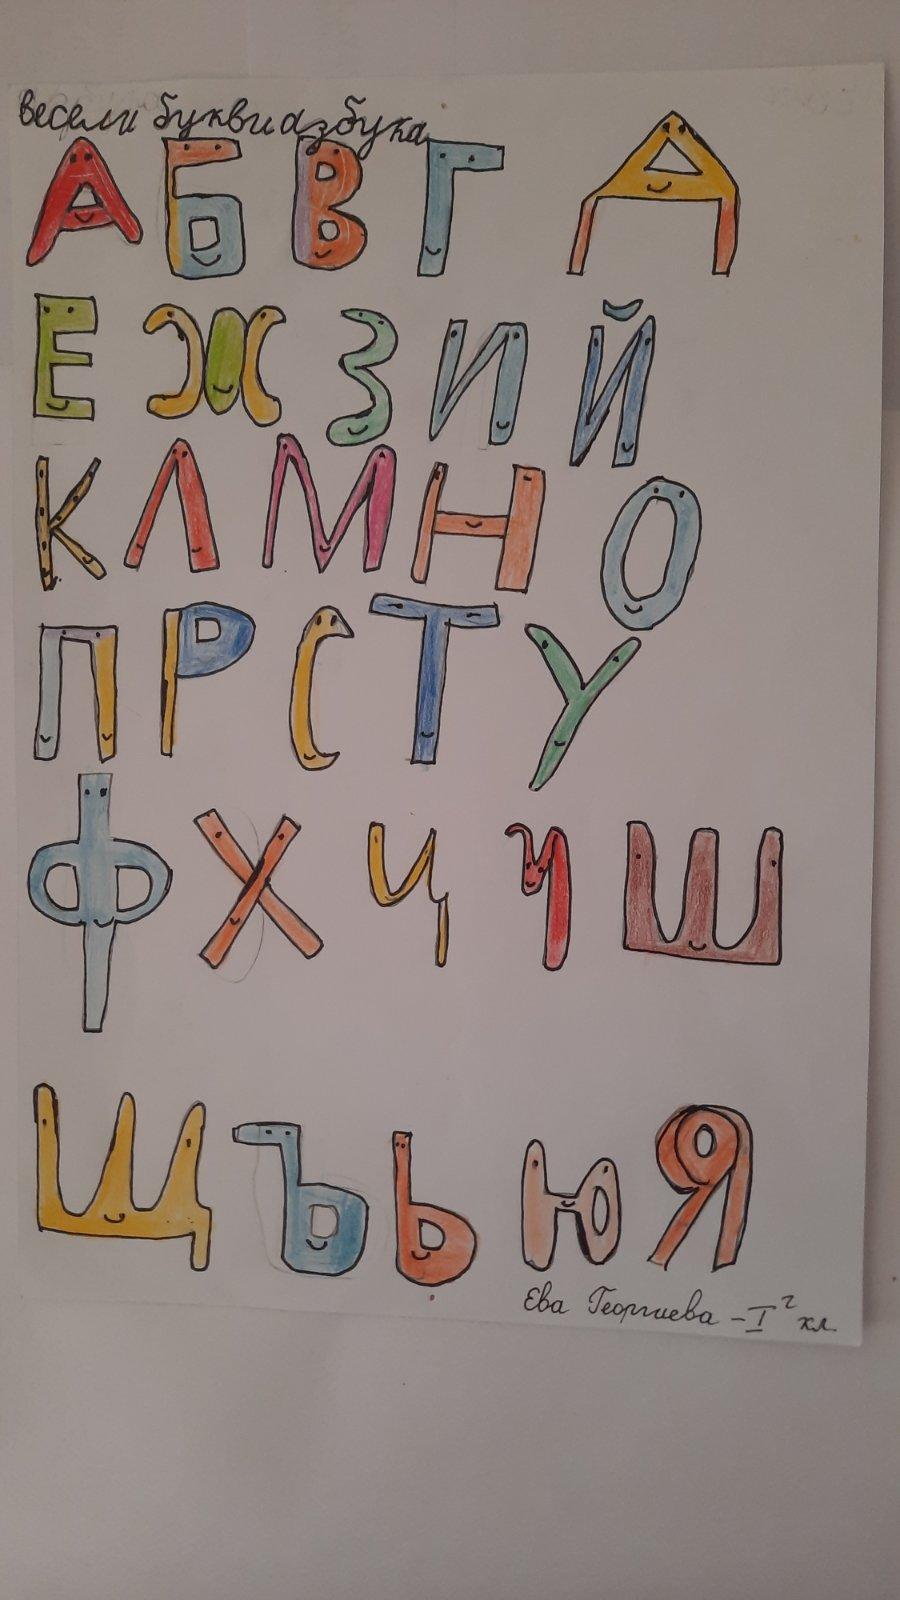 весели букви азбука
А Б В Г Д
Е Ж З И Й
К Л М Н О
П Р С Т У
Ф Х Ц Ч Ш
Щ Ъ Ь Ю Я
Ева Георгиева - I г кл.